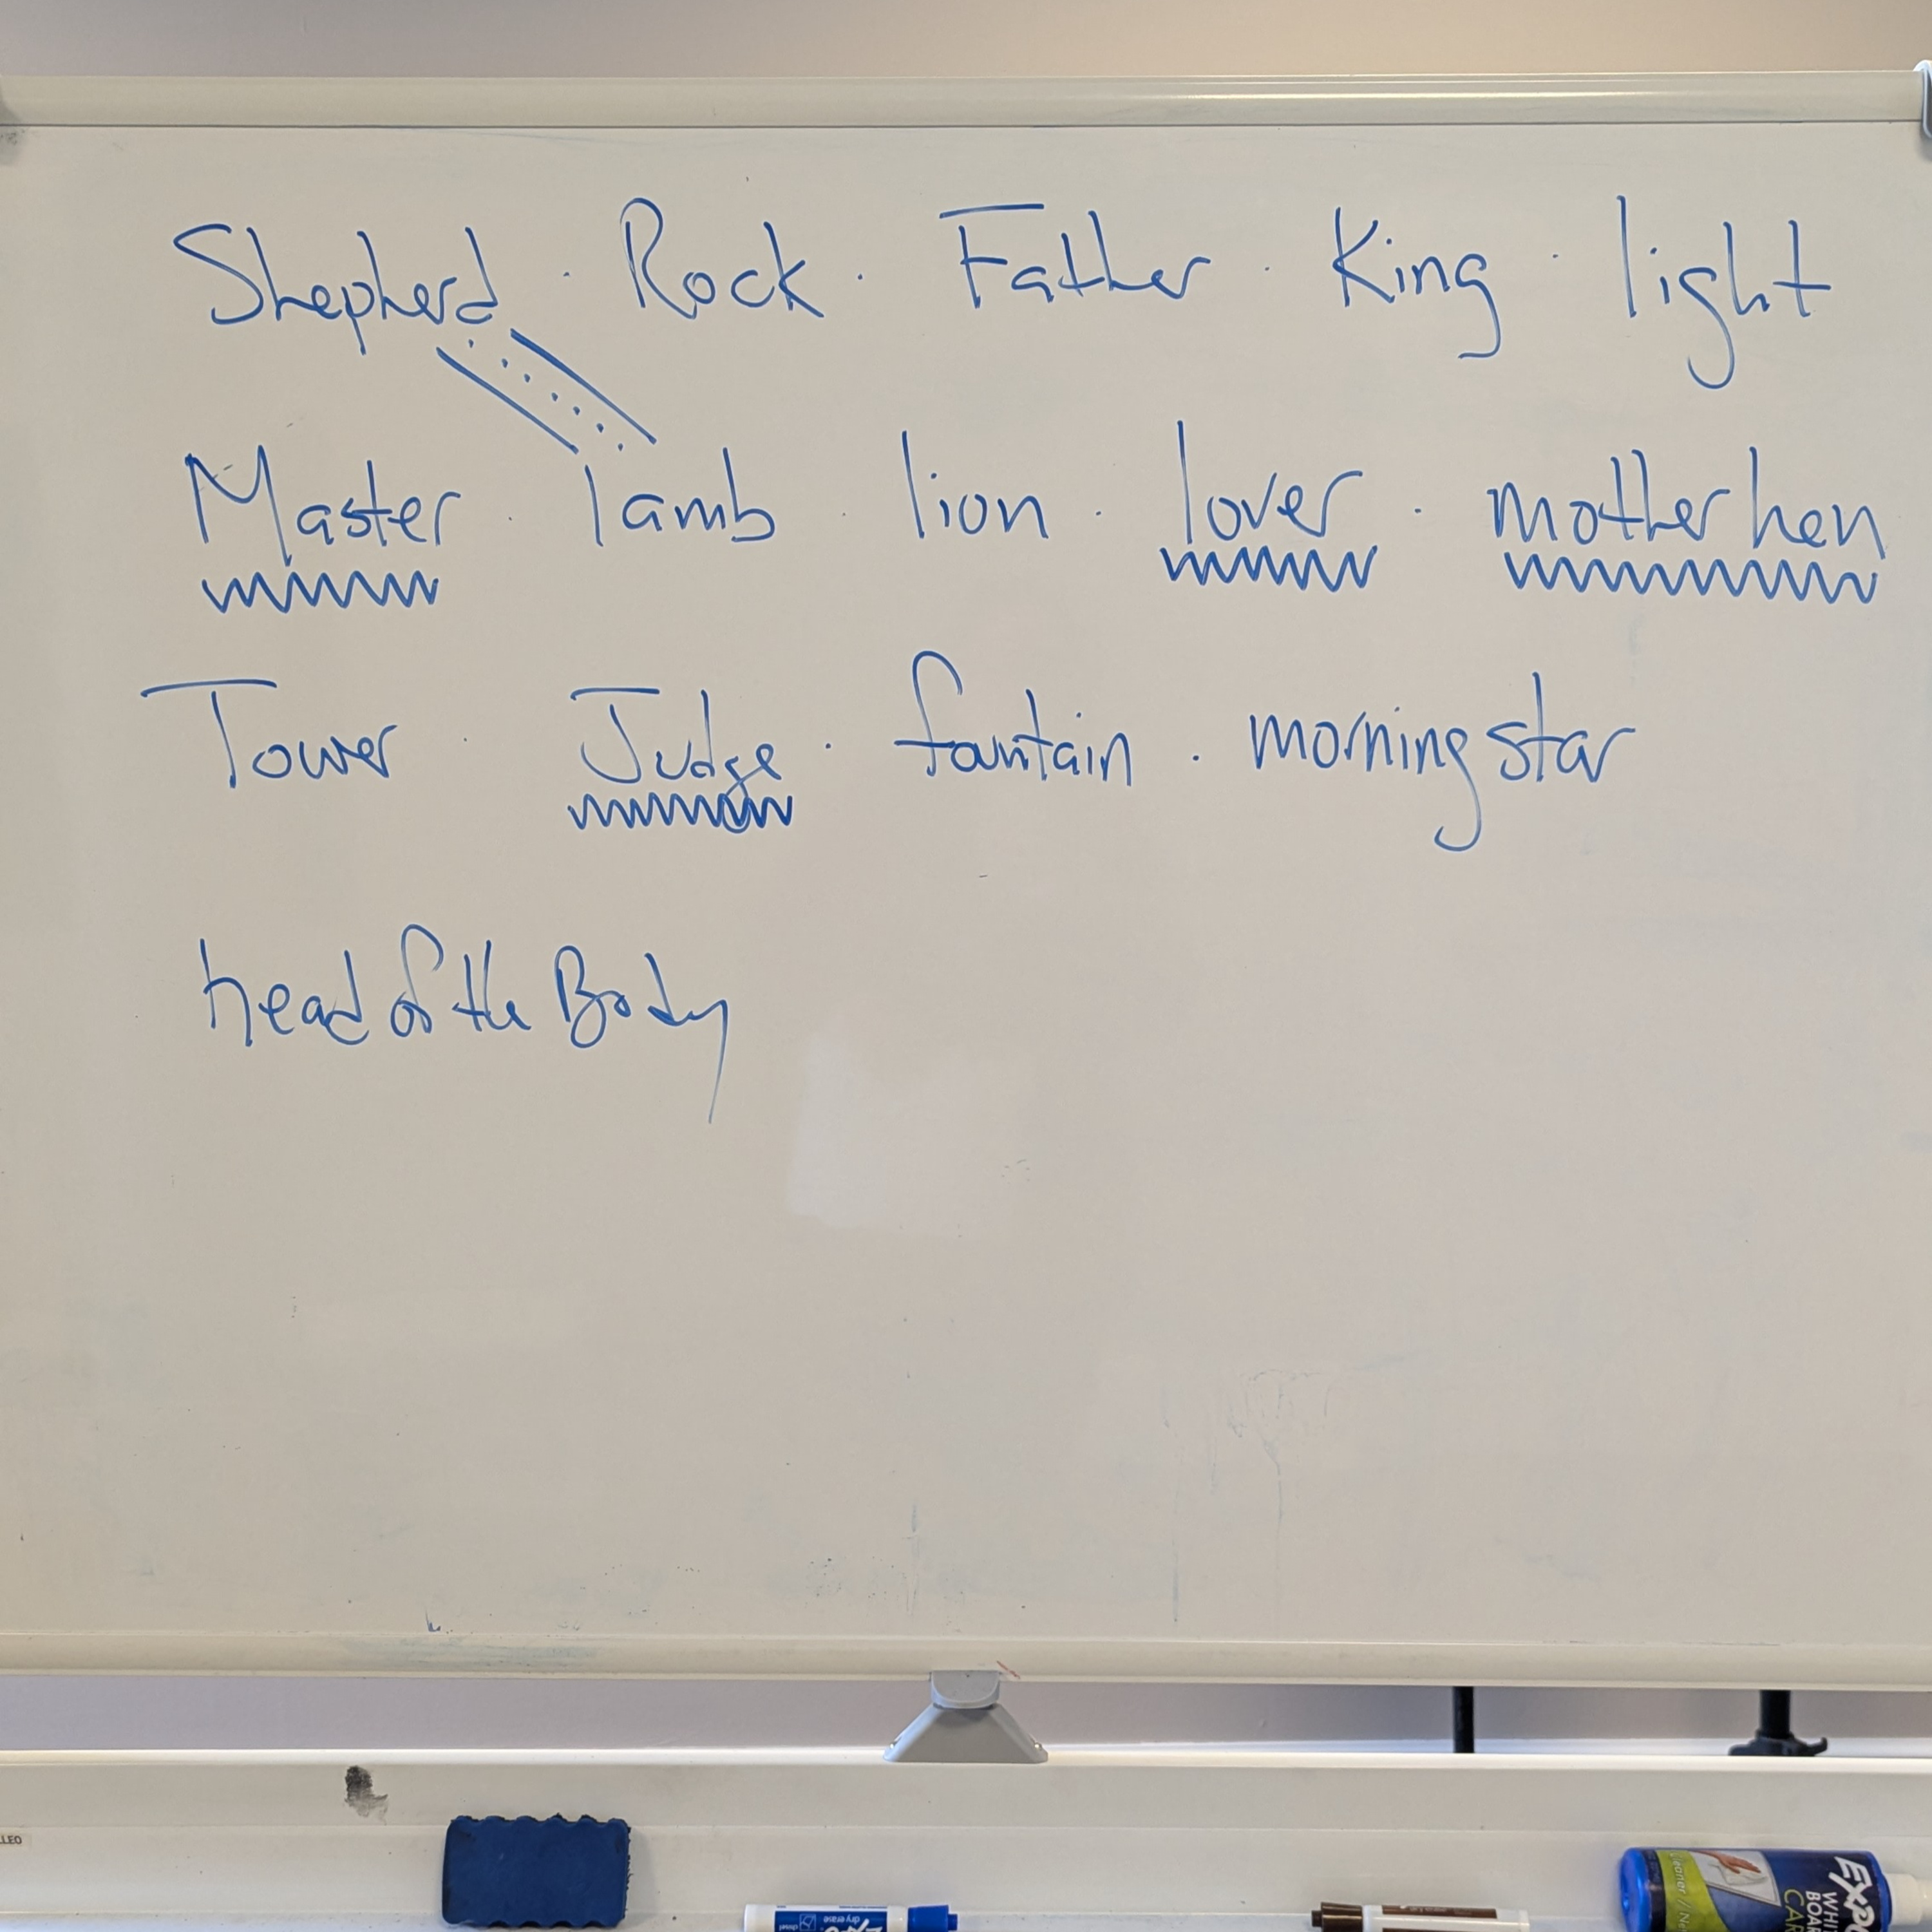 Shepherd · Rock · Father · King · light
Master · lamb · lion · lover · mother hen
Tower · Judge · fountain · morning star
head of the Body
LEO
dry erase
EXPO